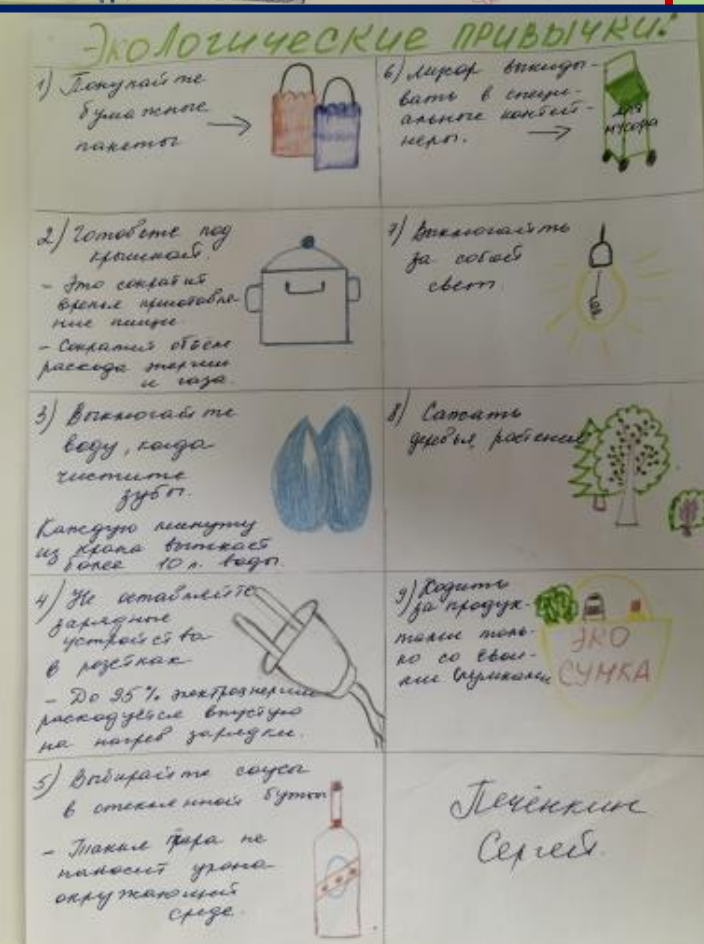 Экологические привычки:
1) Покупайте
бумажные
пакеты
2) Готовьте под
крышкой.
- Это сократит
время приготовле-
ние пищи.
- Сократит объем
расхода энергии
и газа.
3) Выключайте
воду, когда
чистите
зубы.
Каждую минуту
из крана вытекает
более 10 л. воды.
4) Не оставляйте
зарядные
устройства
в розетках
- До 95% электроэнергии
расходуется впустую
на нагрев зарядки.
5) Выбирайте соусы
в стеклянной
- Такая тара не
наносит урона
окружающей
среде.
6) Мусор выкиды-
вать в специ-
альные контей-
неры.
для
мусора
7) Выключайте
за собой
свет
8) Сажать
деревья, растения
9) Ходить
за продук-
тами толь-
ко со свои-
ми сумками
ЭКО
СУМКА
Печёнкин
Сергей.